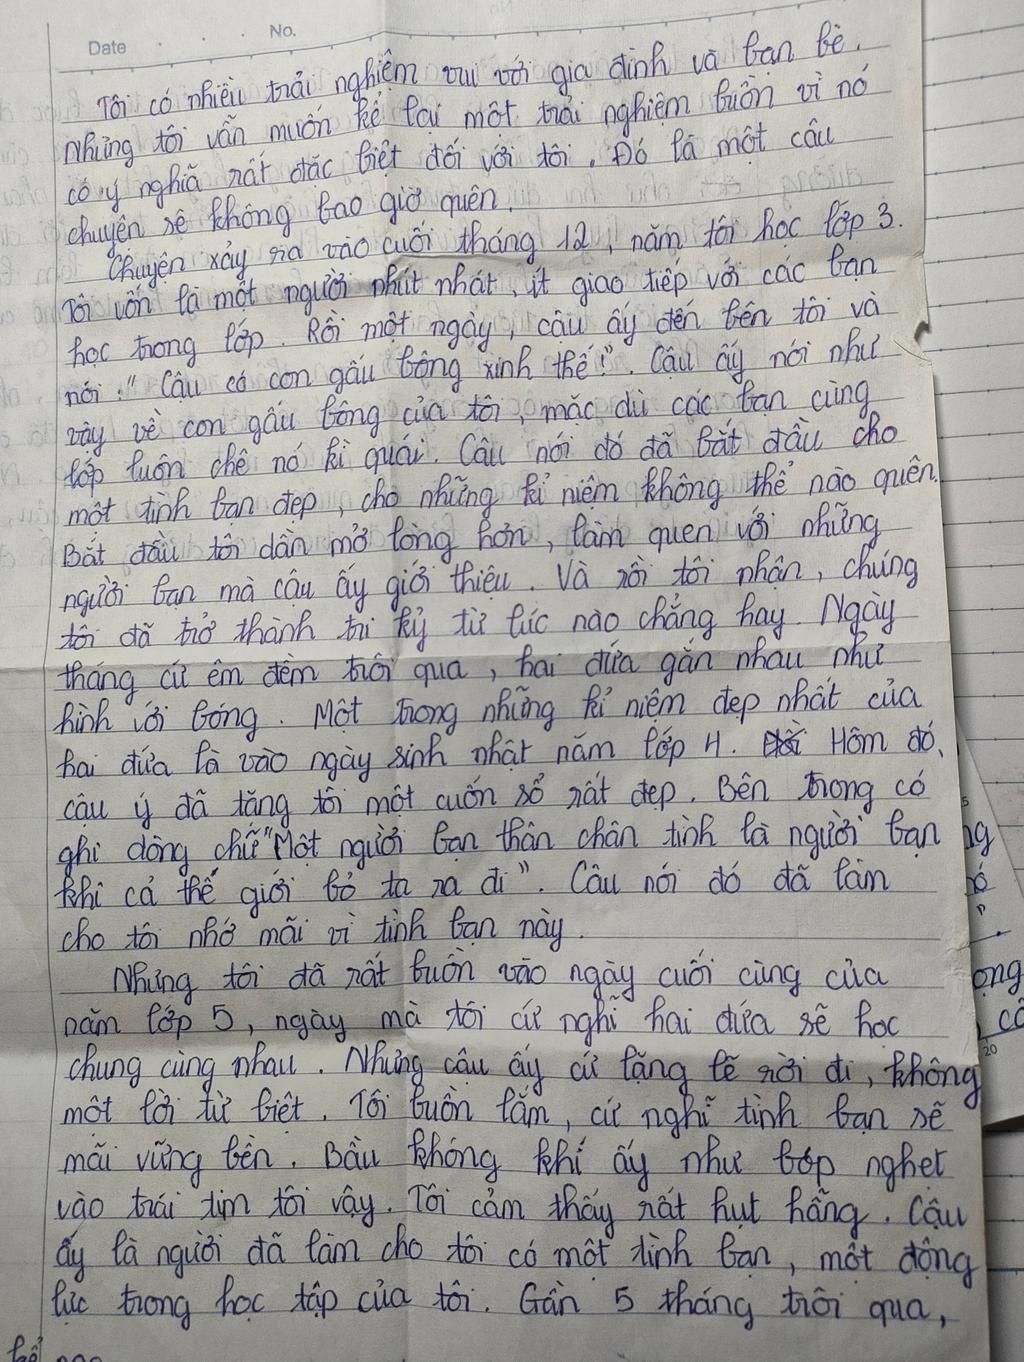 Date No.
Tôi có nhiều trải nghiệm vui với gia đình và bạn bè.
Nhưng tôi vẫn muốn kể lại một trải nghiệm buồn vì nó
có ý nghĩa rất đặc biệt đối với tôi. Đó là một câu
chuyện sẽ không bao giờ quên.
Chuyện xảy ra vào cuối tháng 12, năm tôi học lớp 3.
Tôi vốn là một người nhút nhát, ít giao tiếp với các bạn
học trong lớp. Rồi một ngày, cậu ấy đến bên tôi và
nói: "Cậu có con gấu bông xinh thế!". Cậu ấy nói như
vậy về con gấu bông của tôi, mặc dù các bạn cùng
lớp luôn chê nó kì quái. Câu nói đó đã bắt đầu cho
một tình bạn đẹp, cho những kỉ niệm không thể nào quên.
Bắt đầu tôi dần mở lòng hơn, làm quen với những
người bạn mà cậu ấy giới thiệu. Và rồi tôi nhận, chúng
tôi đã trở thành tri kỷ từ lúc nào chẳng hay. Ngày
tháng cứ êm đềm trôi qua, hai đứa gắn nhau như
hình với bóng. Một trong những kỉ niệm đẹp nhất của
hai đứa là vào ngày sinh nhật năm lớp 4. Hôm đó,
cậu ý đã tặng tôi một cuốn sổ rất đẹp. Bên trong có
ghi dòng chữ "Một người bạn thân chân tình là người bạn
khi cả thế giới bỏ ta ra đi". Câu nói đó đã làm
cho tôi nhớ mãi vì tình bạn này.
Nhưng tôi đã rất buồn vào ngày cuối cùng của
năm lớp 5, ngày mà tôi cứ nghĩ hai đứa sẽ học
chung cùng nhau. Nhưng cậu ấy cứ lặng lẽ rời đi, không
một lời từ biệt. Tôi buồn lắm, cứ nghĩ tình bạn sẽ
mãi vững bền. Bầu không khí ấy như bóp nghẹt
vào trái tim tôi vậy. Tôi cảm thấy rất hụt hẫng. Cậu
ấy là người đã làm cho tôi có một tình bạn, một động
lực trong học tập của tôi. Gần 5 tháng trôi qua,